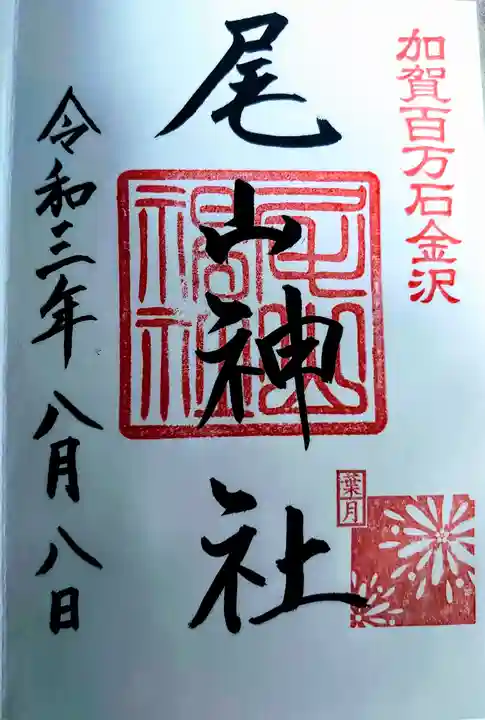 加賀百万石金沢
尾山神社
葉月
令和三年八月八日